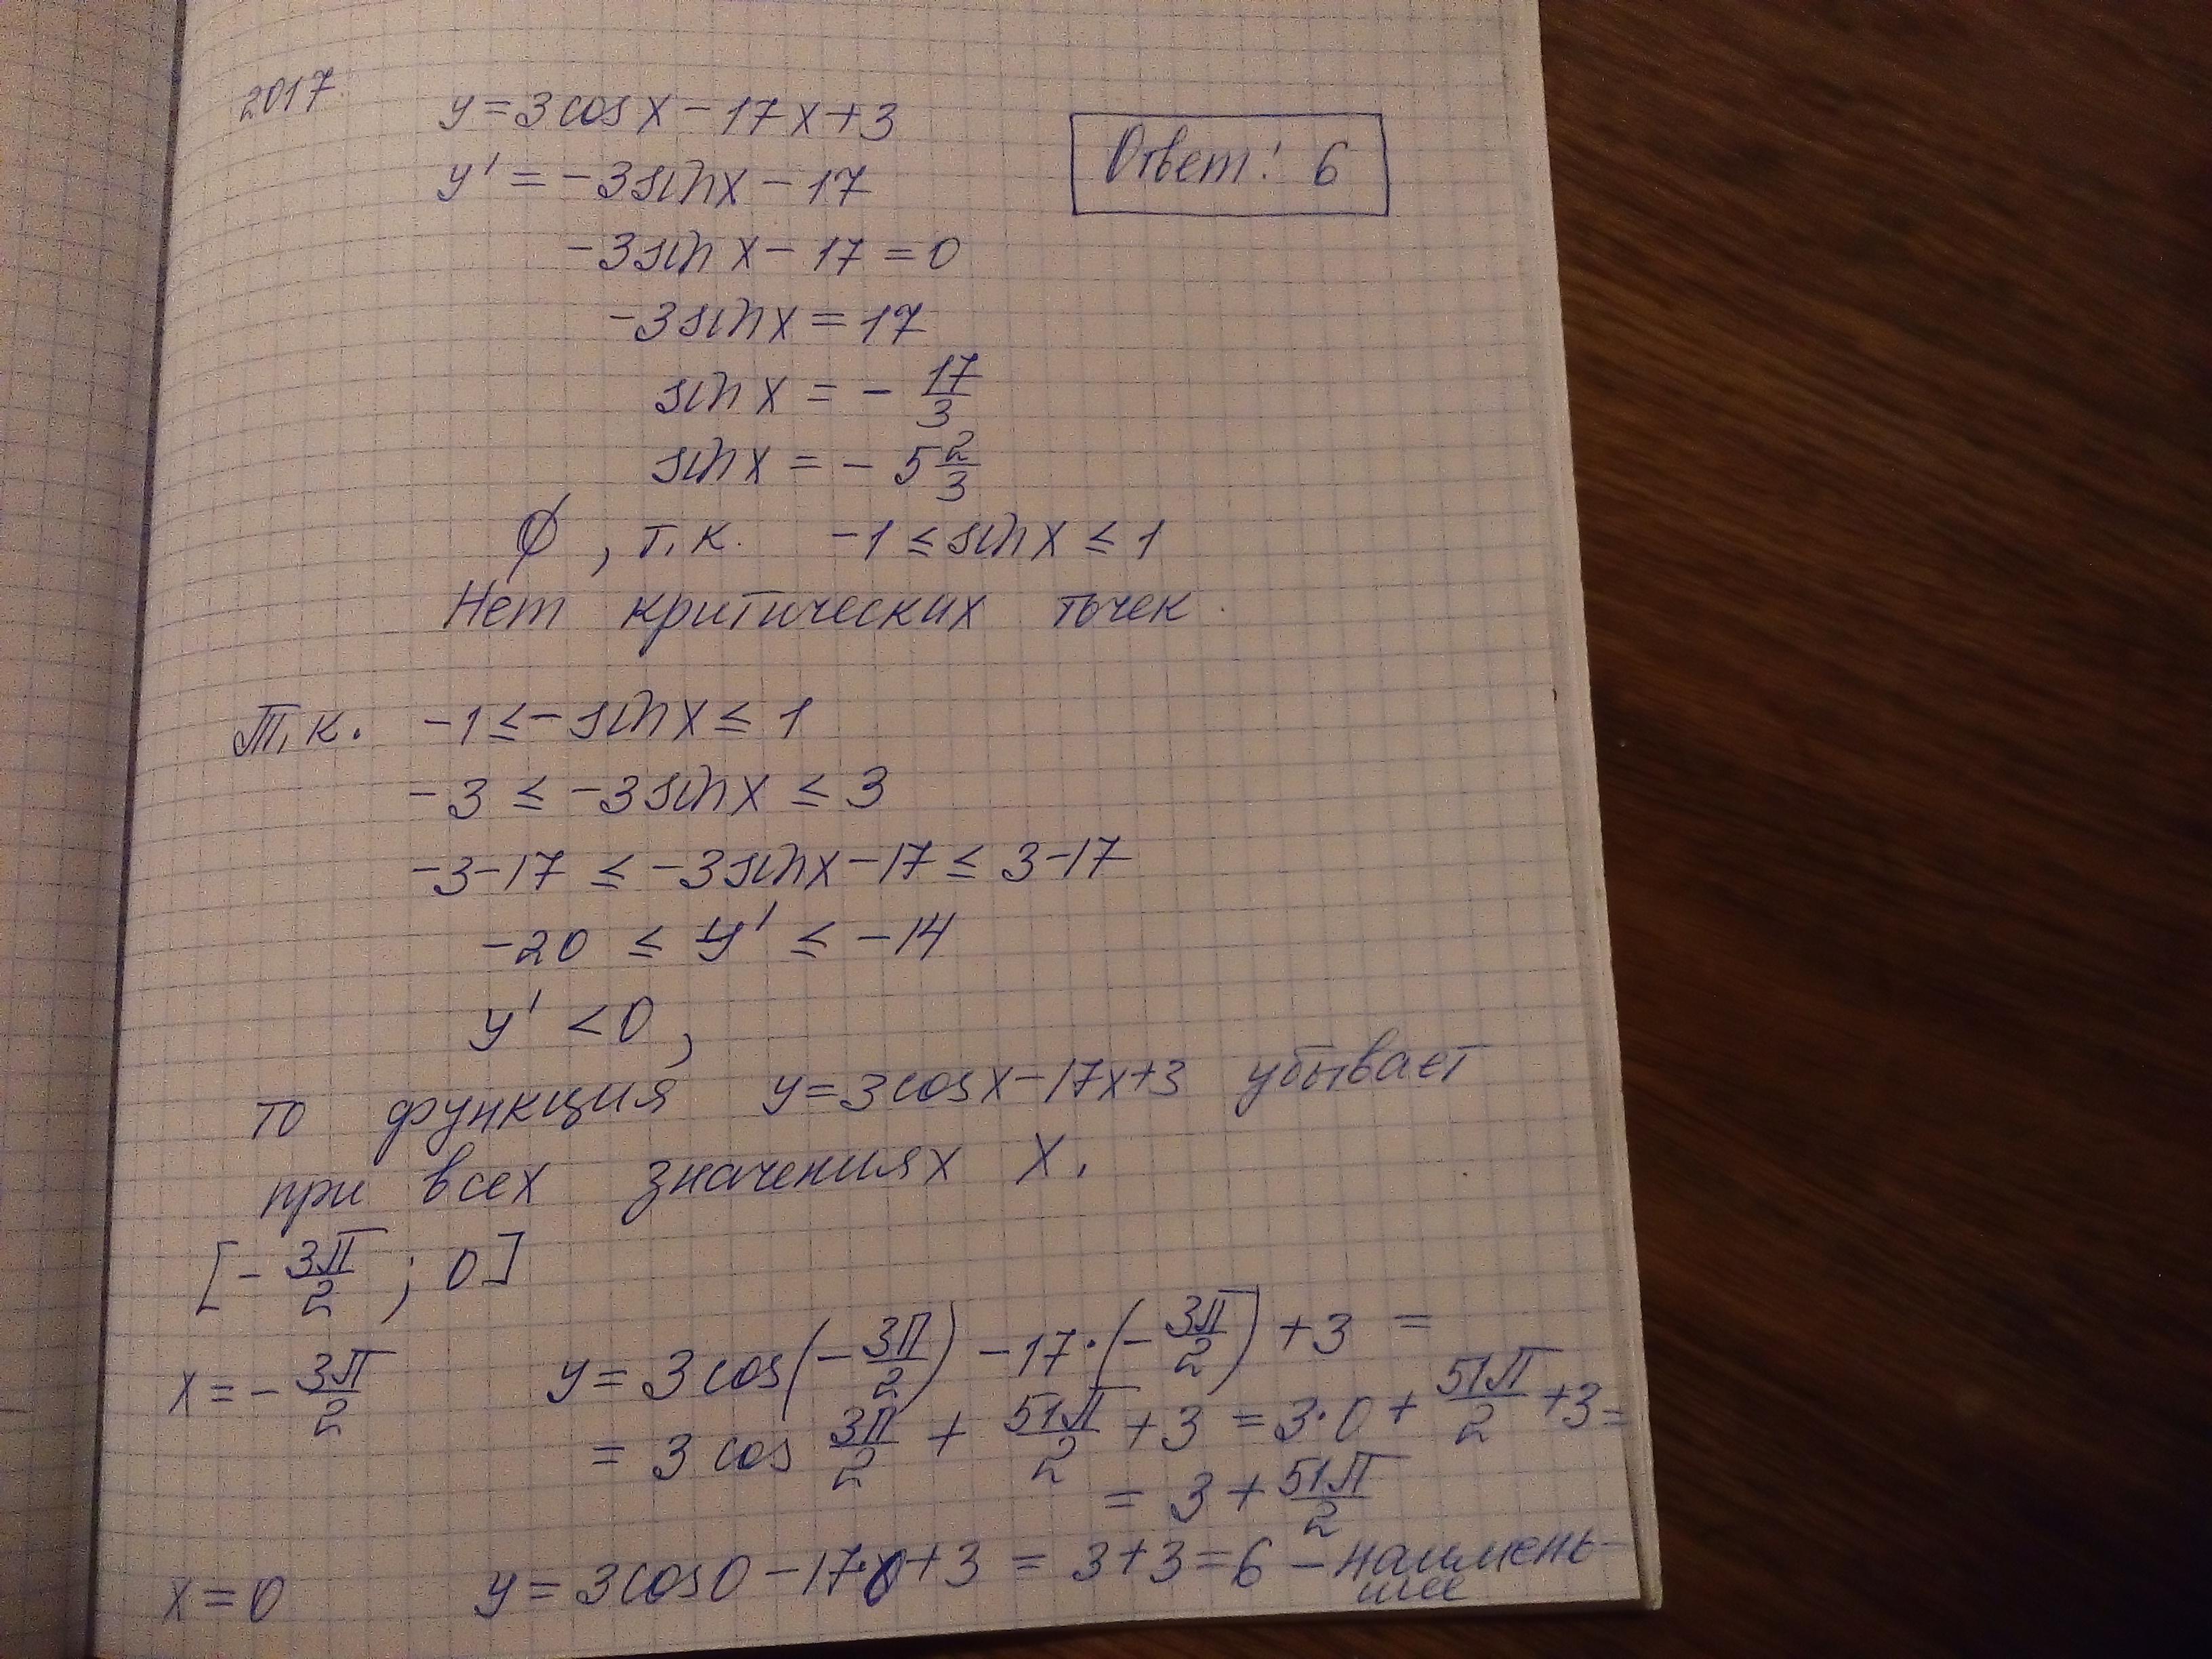 2017.
y = 3 cos x - 17x + 3
Ответ: 6
y' = -3 sin x - 17
-3 sin x - 17 = 0
-3 sin x = 17
sin x = - 17/3
sin x = - 5 2/3
∅, т.к. -1 ≤ sin x ≤ 1
Нет критических точек.
Т.к. -1 ≤ - sin x ≤ 1
-3 ≤ -3 sin x ≤ 3
-3-17 ≤ -3 sin x - 17 ≤ 3-17
-20 ≤ y' ≤ -14
y' < 0,
то функция y = 3 cos x - 17x + 3 убывает
при всех значениях x.
[- 3π/2 ; 0]
x = - 3π/2 y = 3 cos(- 3π/2) - 17·(- 3π/2) + 3 =
= 3 cos 3π/2 + 51π/2 + 3 = 3·0 + 51π/2 + 3 =
= 3 + 51π/2
x = 0 y = 3 cos 0 - 17·0 + 3 = 3 + 3 = 6 - наимень-
шее